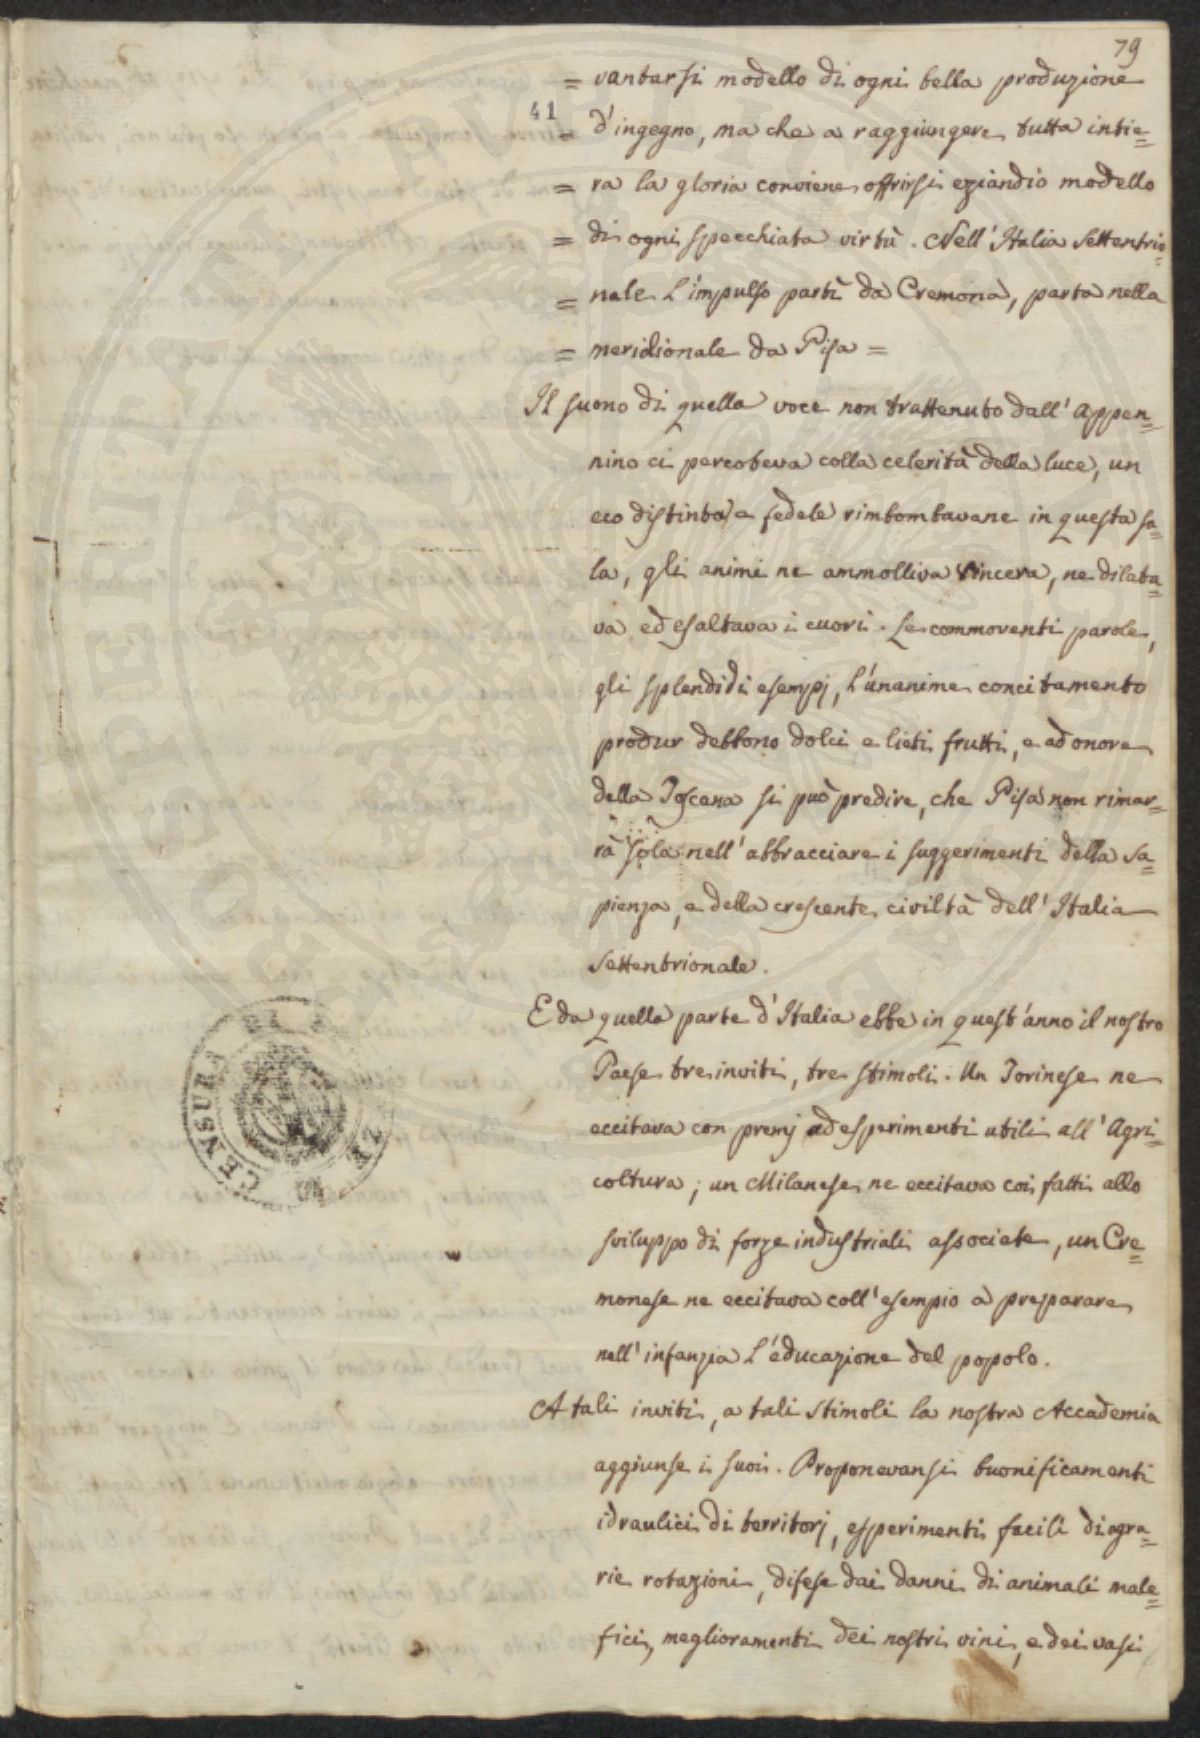 79
= vantarsi modello di ogni bella produzione
41
= d'ingegno, ma che a raggiungere tutta intie=
= ra la gloria conviene offrirsi eziandio modello
= di ogni specchiata virtù. Nell'Italia Settentrio=
= nale l'impulso partì da Cremona, parta nella
= meridionale da Pisa =
Il suono di quella voce non trattenuto dall'Appen=
nino ci percoteva colla celerità della luce, un
eco distinto e fedele rimbombavane in questa sa=
la, gli animi ne ammolliva sincera, ne dilata=
va ed esaltava i cuori. Le commoventi parole,
gli splendidi esempj, l'unanime concitamento
produr debbono dolci e lieti frutti, e ad onore
della Toscana si può predire, che Pisa non rimar=
rà sola nell'abbracciare i suggerimenti della sa=
pienza, e della crescente civiltà dell'Italia
Settentrionale.
E da quella parte d'Italia ebbe in quest'anno il nostro
Paese tre inviti, tre stimoli. Un Torinese ne
eccitava con premj ad esperimenti utili all'Agri=
coltura; un Milanese ne eccitava coi fatti allo
sviluppo di forze industriali associate, un Cre=
monese ne eccitava coll'esempio a preparare
nell'infanzia l'educazione del popolo.
A tali inviti, a tali stimoli la nostra Accademia
aggiunse i suoi. Proponevansi buonificamenti
idraulici di territorj, esperimenti facili di agra=
rie rotazioni, difese dai danni di animali male=
fici, meglioramenti dei nostri vini, e dei vasi
CENSURA DI
PROSPERITATI PUBLICAE AUGENDAE